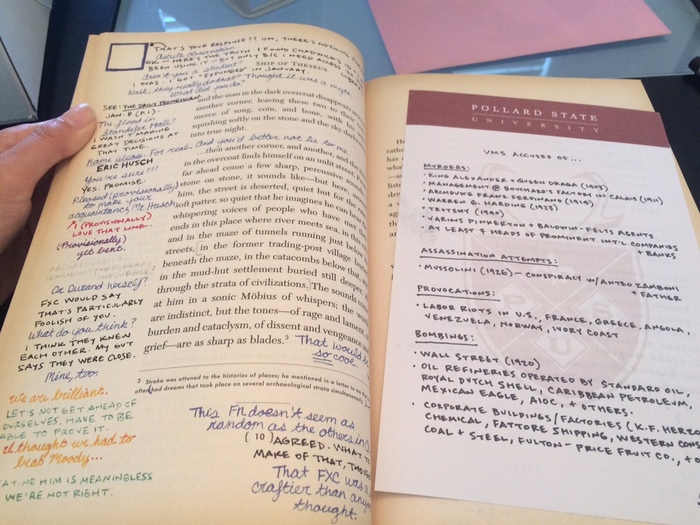 THAT'S YOUR RESPONSE?? UM, THERE'S NOTHING
Astute observation.
OK — HERE'S THE TRUTH. I FOUND CHADWICK'S
BEEN USING IT — BUT ONLY B/C I NEED ACCESS
SHIP OF THESEUS
Aren't you a student?
I WAS. I GOT EXPUNGED IN JANUARY.
Wait, they really do that? Thought it was a myth.
What did you do?
SEE: THE DAILY PRONGHORN,
JAN. 8 (P. 1).
The flood in
Standefer Hall?
I WASN'T MAKING
GREAT DECISIONS AT
THAT TIME.
Name please. For real. And you'd better not lie to me.
ERIC HUSCH
You're sure???
YES. PROMISE.
Pleased (provisionally)
to make your
acquaintance, Mr. Husch
(PROVISIONALLY)
LOVE THAT LINE.
(Provisionally)
yet bent.
Or Durand herself?
FXC WOULD SAY
THAT'S PARTICULARLY
FOOLISH OF YOU.
What do you think?
I THINK THEY KNEW
EACH OTHER. MY GUT
SAYS THEY WERE CLOSE.
Mine, too.
We are brilliant.
LET'S NOT GET AHEAD OF
OURSELVES. HAVE TO BE
ABLE TO PROVE IT.
I thought we had to
beat Moody...
HIM IS MEANINGLESS
WE'RE NOT RIGHT.
and the man in the dark overcoat disappears
another corner, leaving these two to their
merce of song, coin, and bone, with
squishing softly on the stone and the sky
into true night.
then another corner, and another, and the
in the overcoat finds himself on an unlit street.
far ahead come a few sharp, percussive
stone on stone, it sounds like—but here,
him, the street is deserted, quiet but for the
soft patter, so quiet that he imagines he can
whispering voices of people who have
ends in this place where river meets sea, in this
and in the maze of tunnels running just below
streets, in the former trading-post village
beneath the maze, in the catacombs below that
in the mud-hut settlement buried still deeper
through the strata of civilizations. The sounds
at him in a sonic Möbius of whispers; the
are indistinct, but the tones—of rage and lament
burden and cataclysm, of dissent and vengeance
grief—are as sharp as blades.³
That would be
so cool
3 Straka was attuned to the histories of places; he mentioned in a letter to me
often had dreams that took place on several archaeological strata simultaneously
This FN doesn't seem as
random as the others in
(10) AGREED. WHAT
MAKE OF THAT,
That FXC was a
craftier than anyone
thought.
POLLARD STATE
UNIVERSITY
VMS ACCUSED OF...
MURDERS:
• KING ALEXANDER + QUEEN DRAGA (1903)
• MANAGEMENT @ BOUCHARD'S FACTORY IN CALAIS (1911)
• ARCHDUKE FRANZ FERDINAND (1914)
• WARREN G. HARDING (1923)
• TROTSKY (1940)
• VARIOUS PINKERTON + BALDWIN-FELTS AGENTS
• AT LEAST 7 HEADS OF PROMINENT INT'L COMPANIES
+ BANKS
ASSASSINATION ATTEMPTS:
• MUSSOLINI (1926) – CONSPIRACY W/ ANTEO ZAMBONI
+ FATHER
PROVOCATIONS:
• LABOR RIOTS IN U.S., FRANCE, GREECE, ANGOLA,
VENEZUELA, NORWAY, IVORY COAST
BOMBINGS:
• WALL STREET (1920)
• OIL REFINERIES OPERATED BY STANDARD OIL,
ROYAL DUTCH SHELL, CARIBBEAN PETROLEUM,
MEXICAN EAGLE, AIOC, + OTHERS.
• CORPORATE BUILDINGS/FACTORIES (K.F. HERZOG
CHEMICAL, FATTORE SHIPPING, WESTERN CONS.
COAL + STEEL, FULTON-PRICE FRUIT CO.,